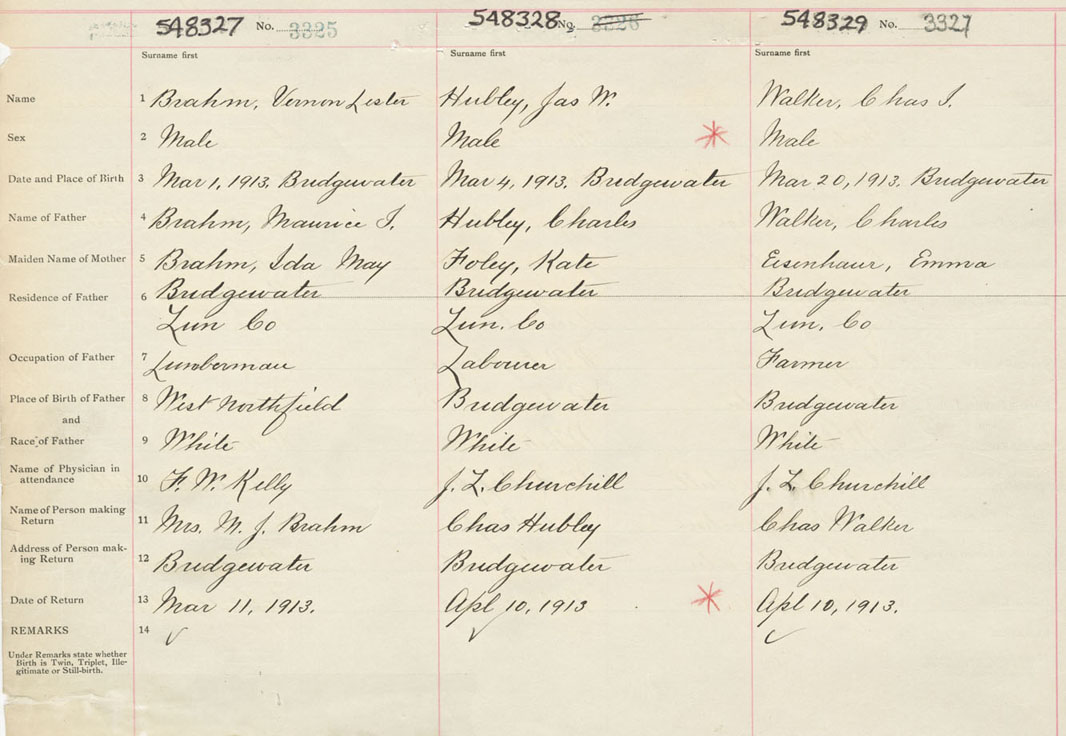 548327 No. 3325 548328 No. 3326 548329 No. 3327
Surname first Surname first Surname first
Name 1 Brahm, Vernon Lester Hubley, Jas W. Walker, Chas I.
Sex 2 Male Male * Male
Date and Place of Birth 3 Mar 1, 1913. Bridgewater Mar 4, 1913. Bridgewater Mar 20, 1913. Bridgewater
Name of Father 4 Brahm, Maurice J. Hubley, Charles Walker, Charles
Maiden Name of Mother 5 Brahm, Ida May Foley, Kate Eisenhaur, Emma
Residence of Father 6 Bridgewater Bridgewater Bridgewater
Lun Co Lun. Co Lun. Co
Occupation of Father 7 Lumberman Labourer Farmer
Place of Birth of Father 8 West Northfield Bridgewater Bridgewater
and
Race of Father 9 White White White
Name of Physician in
attendance 10 F. W. Kelly J. L. Churchill J. L. Churchill
Name of Person making
Return 11 Mrs. M. J. Brahm Chas Hubley Chas Walker
Address of Person mak-
ing Return 12 Bridgewater Bridgewater Bridgewater
Date of Return 13 Mar 11, 1913. Apl 10, 1913 * Apl 10, 1913.
REMARKS 14 ✓ ✓ ✓
Under Remarks state whether
Birth is Twin, Triplet, Ille-
gitimate or Still-birth.